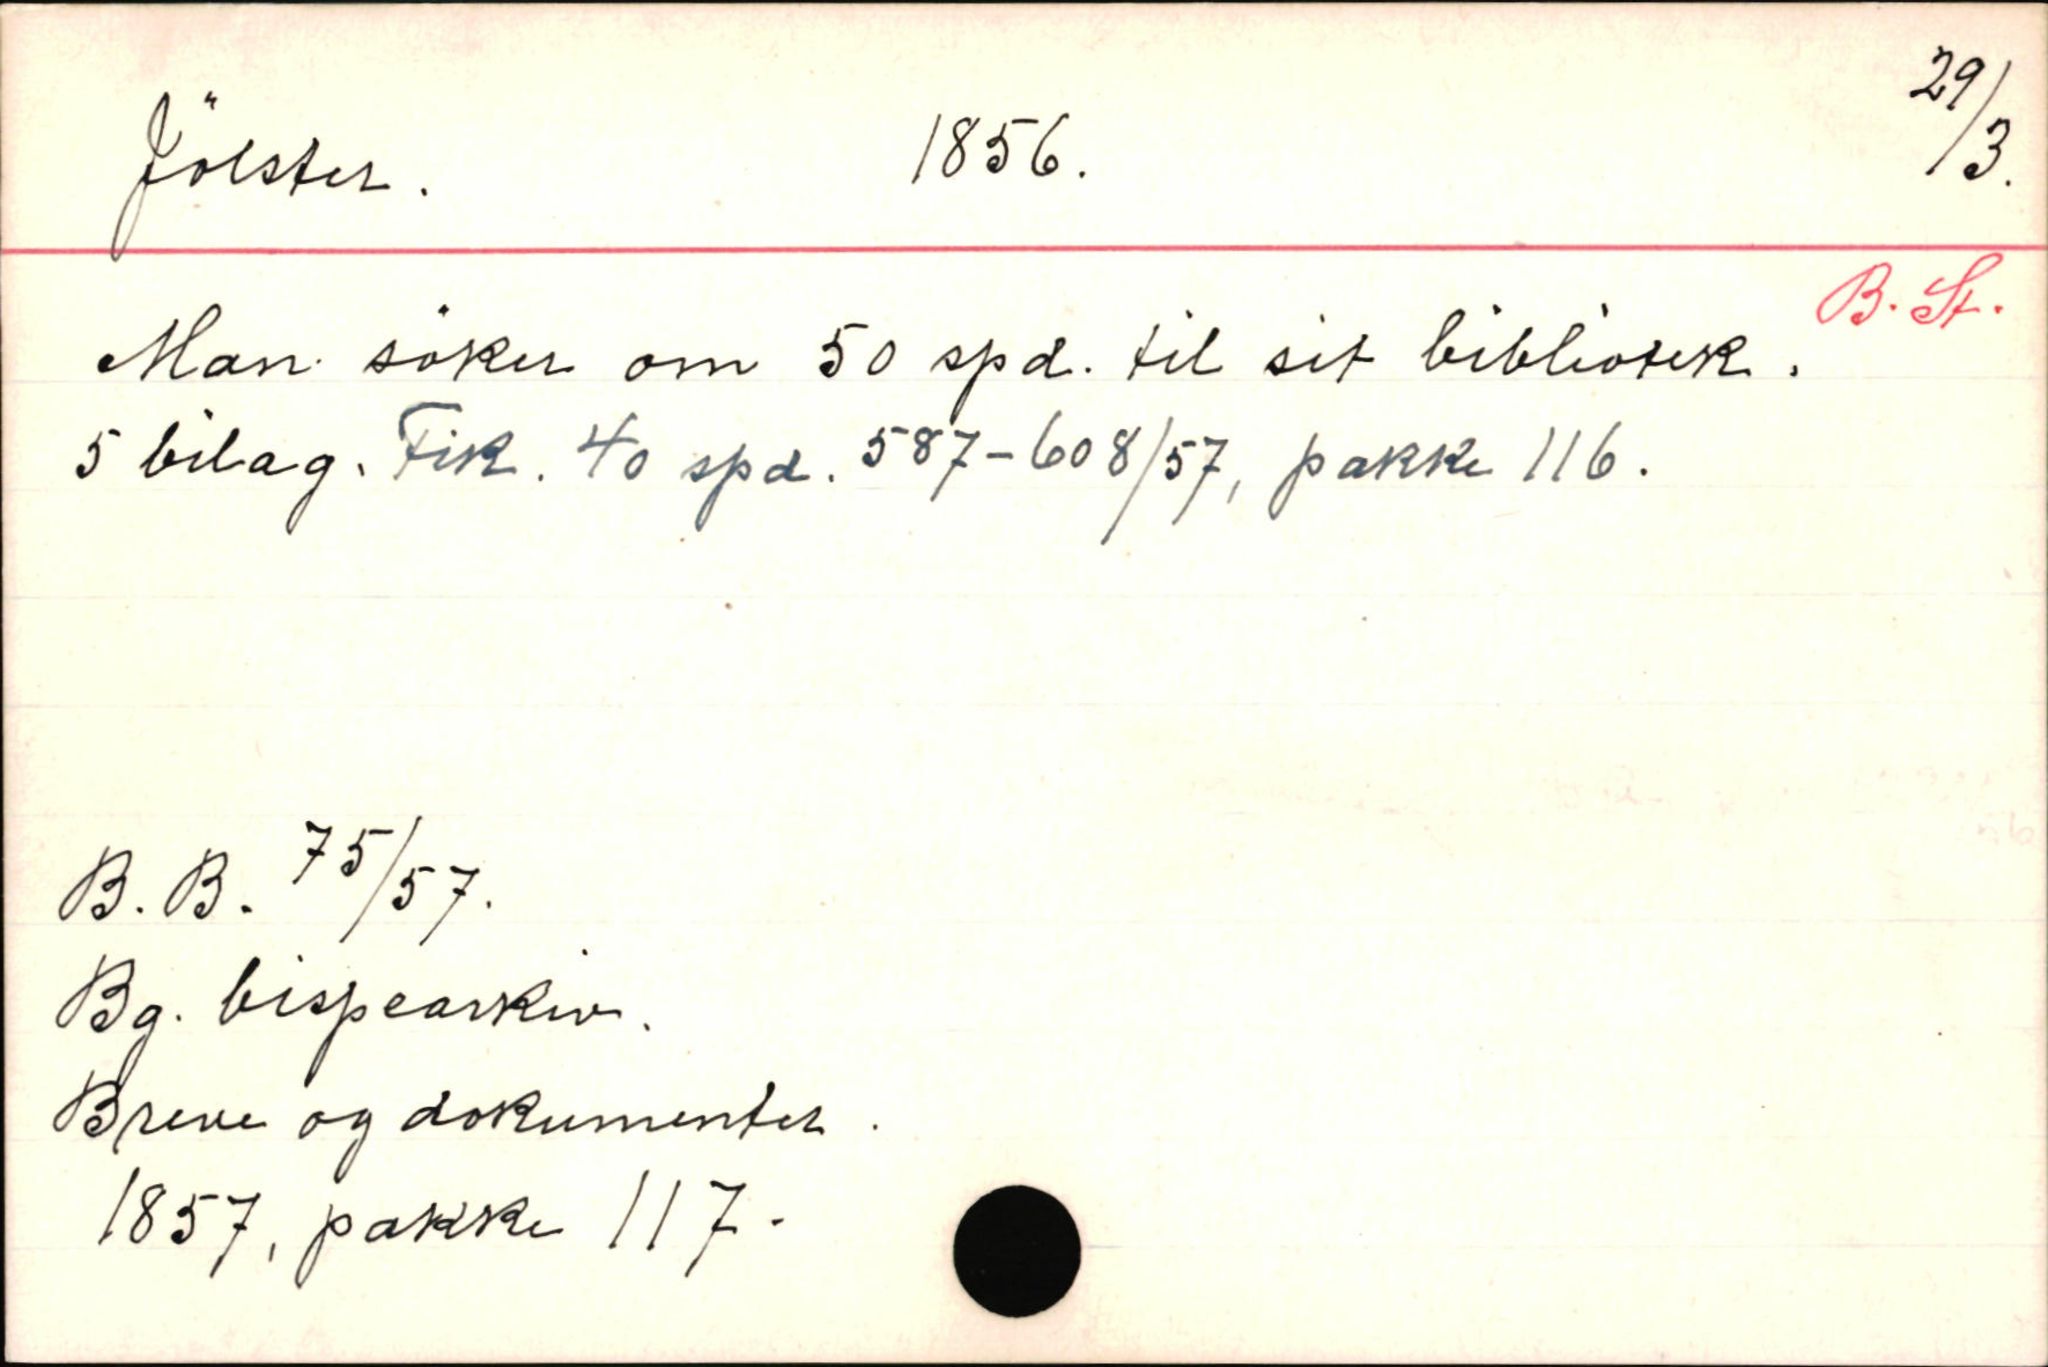 Jölster. 1856. 29/3.
B. St.
Man söker om 50 spd. til sit bibliotek.
5 bilag. Fik. 40 spd. 587-608/57, pakke 116.
B. B. 75/57.
Bg. bispearkiv.
Breve og dokumenter.
1857, pakke 117.